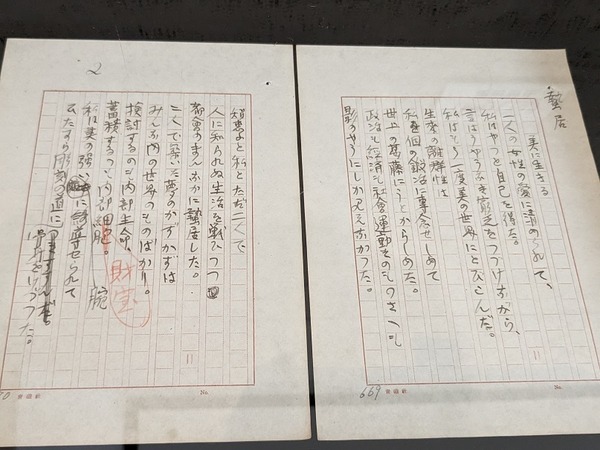 蟄居
美に生きる
一人の女性の愛に清められて、
私はやつと自己を得た。
言はうやうなき窮乏をつづけながら、
私はもう一度美の世界にとびこんだ。
生来の離群性は
私を個の鍛冶に専念せしめて
世上の葛藤にうとからしめた。
政治も経済も社会運動そのものさへも
影のやうにしか見えなかつた。
669
2
智恵子と私とただ二人で
人に知られぬ生活を戦ひつつ
都会のまんなかに蟄居した。
二人で築いた夢のかずかずは
みんな内の世界のものばかり。
検討するのも内部生命
蓄積するのも内部細胞。
財宝
私は美の強い腕に誘導せられて
ひたすら彫刻の道に
骨身をけづつた。